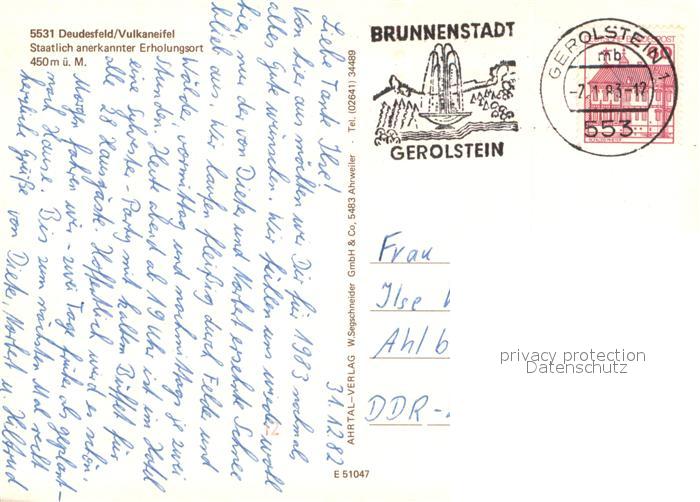 5531 Deudesfeld/Vulkaneifel
Staatlich anerkannter Erholungsort
450 m ü. M.
31.12.82
Liebe Tante Ilse!
Von hier aus möchten wir Dir für 1983 nochmals
alles Gute wünschen. Wir fühlen uns wieder wohl
hier, nur der von Dieter und Norbert ersehnte Schnee
blieb aus. Wir laufen fleißig durch Felder und
Wälder, vormittags und nachmittags je zwei
Stunden. Heute abend ab 19 Uhr ist im Hotel
eine Sylvester-Party mit kaltem Büffet für
alle 28 Hausgäste. Hoffentlich wird es schön.
Morgen fahren wir - zwei Tage früher als geplant -
nach Hause. Bis zum nächsten Mal recht
herzliche Grüße von Dieter, Norbert u. Hiltrud
AHRTAL-VERLAG W. Segschneider GmbH & Co, 5483 Ahrweiler · Tel. (02641) 34489
E 51047
BRUNNENSTADT
GEROLSTEIN
GEROLSTEIN 1
mb
-7.1.83-12
553
Frau
Ilse
Ahlb
DDR-
privacy protection
Datenschutz